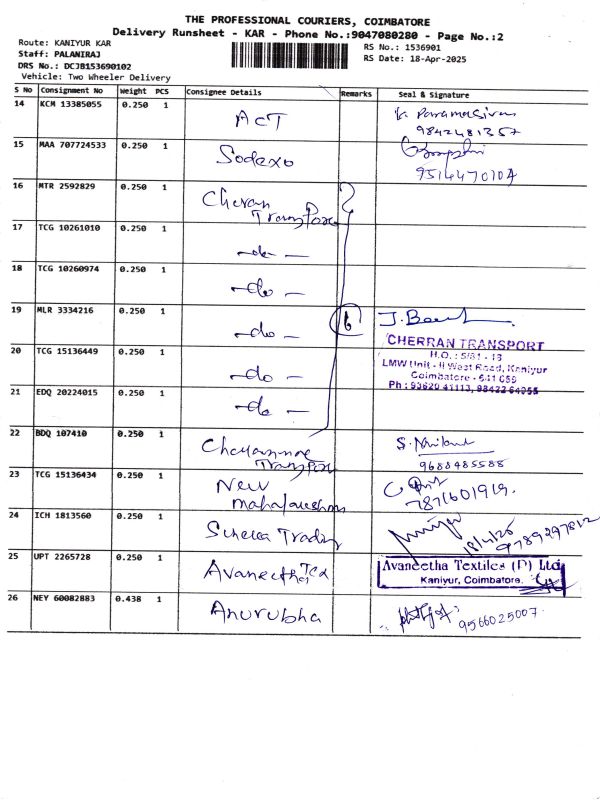 THE PROFESSIONAL COURIERS, COIMBATORE
Delivery Runsheet - KAR - Phone No.:9047080280 - Page No.:2
Route: KANIYUR KAR
RS No.: 1536901
Staff: PALANIRAJ
RS Date: 18-Apr-2025
DRS No.: DCJB153690102
Vehicle: Two Wheeler Delivery
S No Consignment No Weight PCS Consignee Details Remarks Seal & Signature
14 KCM 13385055 0.250 1 ACT K. Paramasivan
9842481357
15 MAA 707724533 0.250 1 Sodexo
9514470104
16 MTR 2592829 0.250 1 Cheran
Transport
17 TCG 10261010 0.250 1 -do-
18 TCG 10260974 0.250 1 -do-
19 MLR 3334216 0.250 1 -do- 6
CHERRAN TRANSPORT
H.O. : 5/81 - 13
20 TCG 15136449 0.250 1 -do- LMW Unit - II West Road, Kaniyur
Coimbatore - 641 059
Ph : 93620 41113, 98422 64055
21 EDQ 20224015 0.250 1 -do-
22 BDQ 107410 0.250 1 Transport
9688485588
23 TCG 15136434 0.250 1 New
7871601919.
24 ICH 1813560 0.250 1 18/4/25
9789297812
25 UPT 2265728 0.250 1 Avaneetha Tex Avaneetha Textiles (P) Ltd
Kaniyur, Coimbatore.
26 NEY 60082883 0.438 1 Anurubha 9566025007.